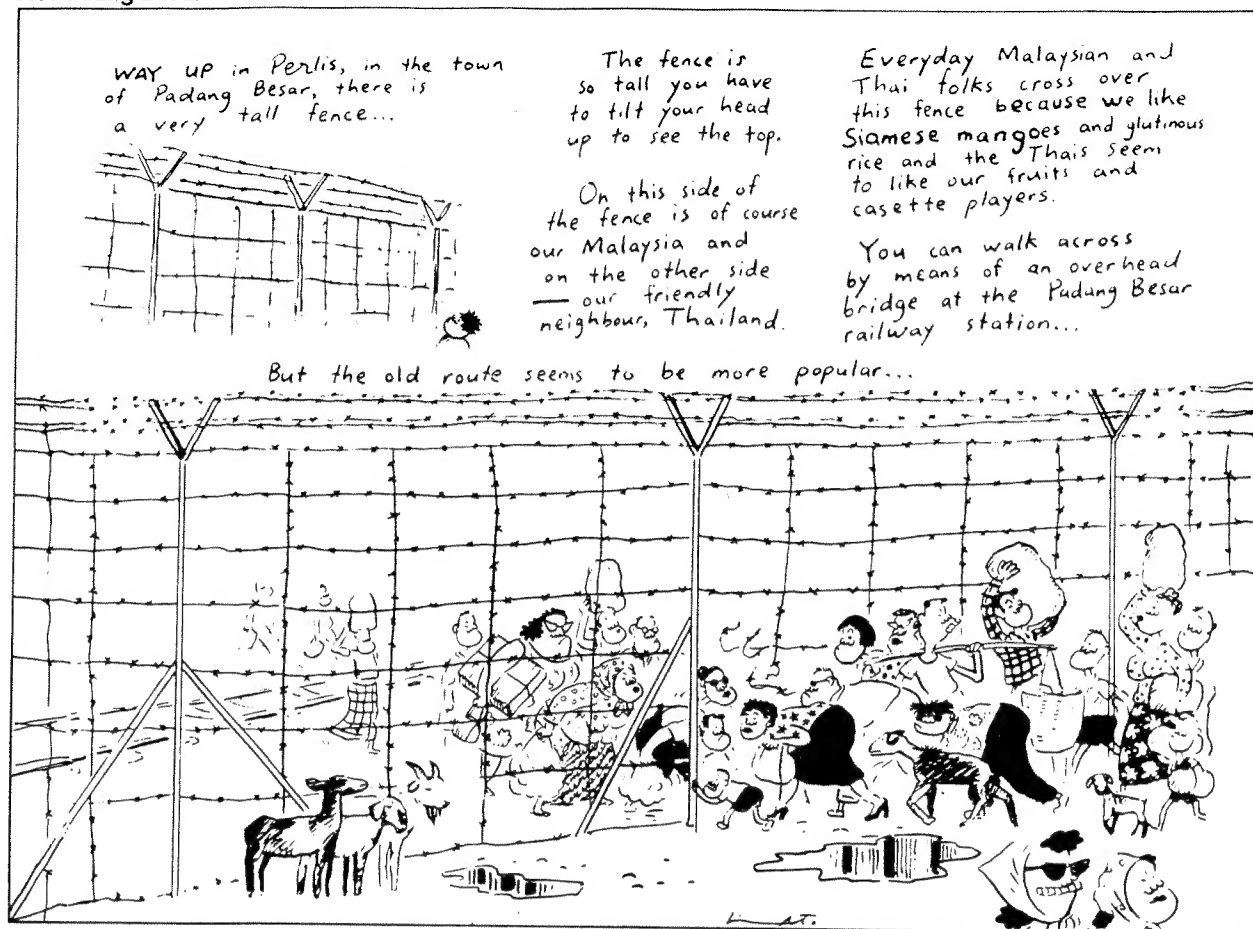 WAY UP in Perlis, in the town
of Padang Besar, there is
a very tall fence...
The fence is
so tall you have
to tilt your head
up to see the top.
On this side of
the fence is of course
our Malaysia and
on the other side
— our friendly
neighbour, Thailand.
Everyday Malaysian and
Thai folks cross over
this fence because we like
Siamese mangoes and glutinous
rice and the Thais seem
to like our fruits and
casette players.
You can walk across
by means of an overhead
bridge at the Padang Besar
railway station...
But the old route seems to be more popular...